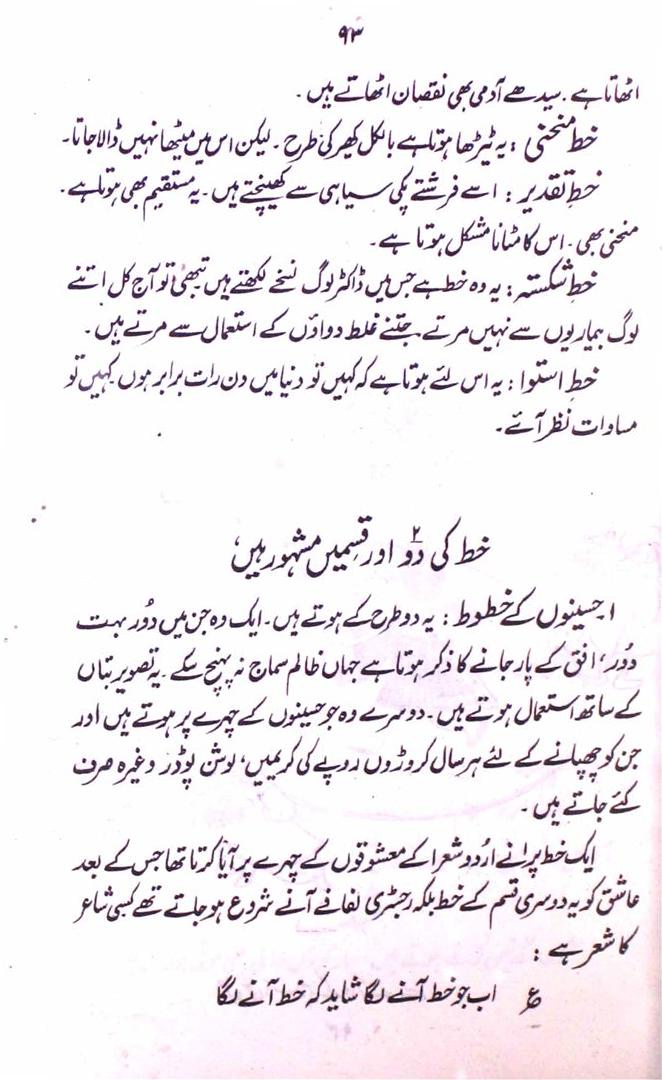 ۹۳
اٹھاتا ہے۔ سیدھے آدمی بھی نقصان اٹھاتے ہیں۔
خط منحنی : یہ ٹیڑھا ہوتا ہے بالکل کھیر کی طرح۔ لیکن اس میں میٹھا نہیں ڈالا جاتا۔
خطِ تقدیر : اسے فرشتے پکی سیاہی سے کھینچتے ہیں۔ یہ مستقیم بھی ہوتا ہے۔
منحنی بھی۔ اس کا مٹانا مشکل ہوتا ہے۔
خطِ شکستہ : یہ وہ خط ہے جس میں ڈاکٹر لوگ نسخے لکھتے ہیں تبھی تو آج کل اتنے
لوگ بیماریوں سے نہیں مرتے جتنے غلط دواؤں کے استعمال سے مرتے ہیں۔
خط استوا : یہ اس لئے ہوتا ہے کہ کہیں تو دنیا میں دن رات برابر ہوں کہیں تو
مساوات نظر آئے۔
خط کی دو۲ اور قسمیں مشہور ہیں،
۱۔ حسینوں کے خطوط : یہ دو طرح کے ہوتے ہیں۔ ایک وہ جن میں دُور بہت
دُور، افق کے پار جانے کا ذکر ہوتا ہے جہاں ظالم سماج نہ پہنچ سکے۔ یہ تصویر بتاں
کے ساتھ استعمال ہوتے ہیں۔ دوسرے وہ جو حسینوں کے چہرے پر ہوتے ہیں اور
جن کو چھپانے کے لئے ہر سال کروڑوں روپے کی کریمیں، لوشن پوڈر وغیرہ صرف
کئے جاتے ہیں۔
ایک خط پرانے اُردو شعرا کے معشوقوں کے چہرے پر آیا کرتا تھا جس کے بعد
عاشق کو یہ دوسری قسم کے خط بلکہ رجسٹری لفافے آنے شروع ہو جاتے تھے کسی شاعر
کا شعر ہے :
ع اب جو خط آنے لگا شاید کہ خط آنے لگا